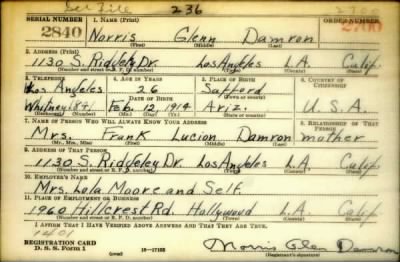 See File 236 2700
SERIAL NUMBER 1. NAME (Print) ORDER NUMBER
2840 Norris Glenn Damron 2700
(First) (Middle) (Last)
2. ADDRESS (Print)
1130 S. Ridgley Dr. Los Angeles L.A. Calif.
(Number and street or R. F. D. number) (Town) (County) (State)
3. TELEPHONE 4. AGE IN YEARS 5. PLACE OF BIRTH 6. COUNTRY OF CITIZENSHIP
Los Angeles 26 Safford
DATE OF BIRTH (Town or county)
Whitney 1841 Feb. 12, 1914 Ariz. U.S.A.
(Exchange) (Number) (Mo.) (Day) (Yr.) (State or country)
7. NAME OF PERSON WHO WILL ALWAYS KNOW YOUR ADDRESS 8. RELATIONSHIP OF THAT PERSON
Mrs. Frank Lucion Damron mother
(Mr., Mrs., Miss) (First) (Middle) (Last)
9. ADDRESS OF THAT PERSON
1130 S. Ridgeley Dr. Los Angeles L.A. Calif.
(Number and street or R. F. D. number) (Town) (County) (State)
10. EMPLOYER'S NAME
Mrs. Lola Moore and Self.
11. PLACE OF EMPLOYMENT OR BUSINESS
1960 Hillcrest Rd. Hollywood L.A. Calif.
(Number and street or R. F. D. number) (Town) (County) (State)
I AFFIRM THAT I HAVE VERIFIED ABOVE ANSWERS AND THAT THEY ARE TRUE.
REGISTRATION CARD
D. S. S. Form 1 (over) Norris Glen Damron